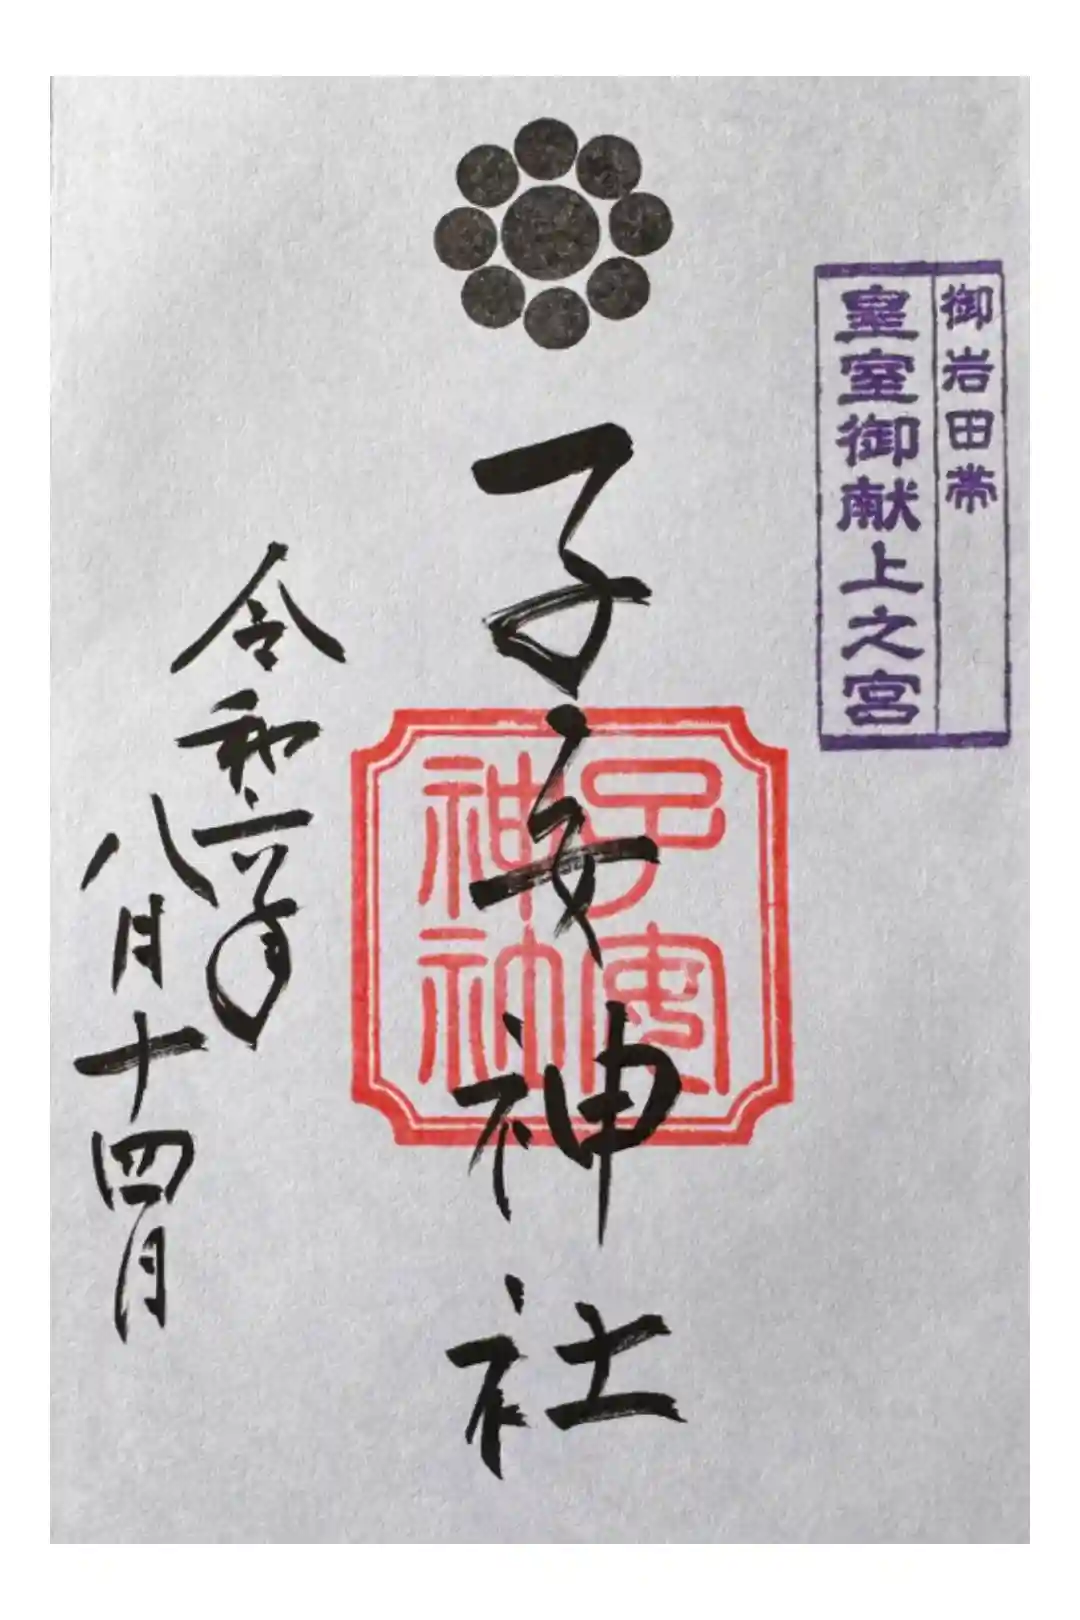 御岩田帯
皇室御献上之宮
子安神社
子安
神社
令和六年
八月十四日